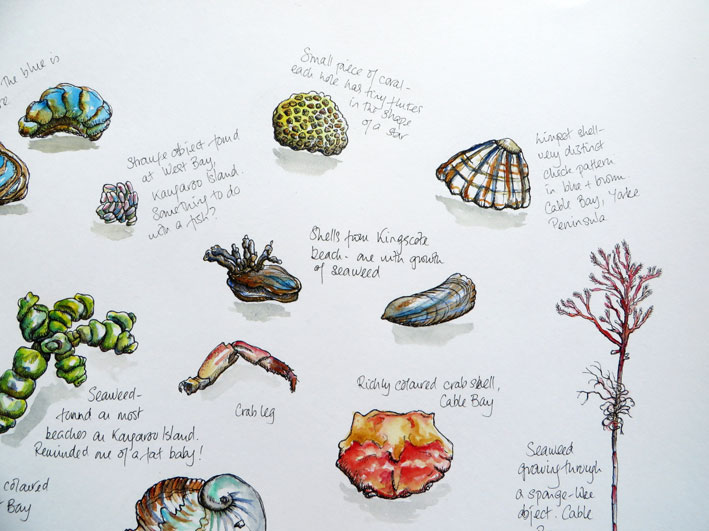 The blue is
Small piece of coral -
each hole has tiny flutes
in the shape
of a star
Strange object - found
at West Bay,
Kangaroo Island.
Something to do
with a fish?
Limpet shell -
very distinct
check pattern
in blue + brown
Cable Bay, Yorke
Peninsula
Shells from Kingscote
beach - one with growth
of seaweed
Richly coloured crab shell,
Cable Bay
Crab leg
Seaweed -
found on most
beaches on Kangaroo Island.
Reminded me of a fat baby!
coloured
Bay
Seaweed
growing through
a sponge-like
object. Cable